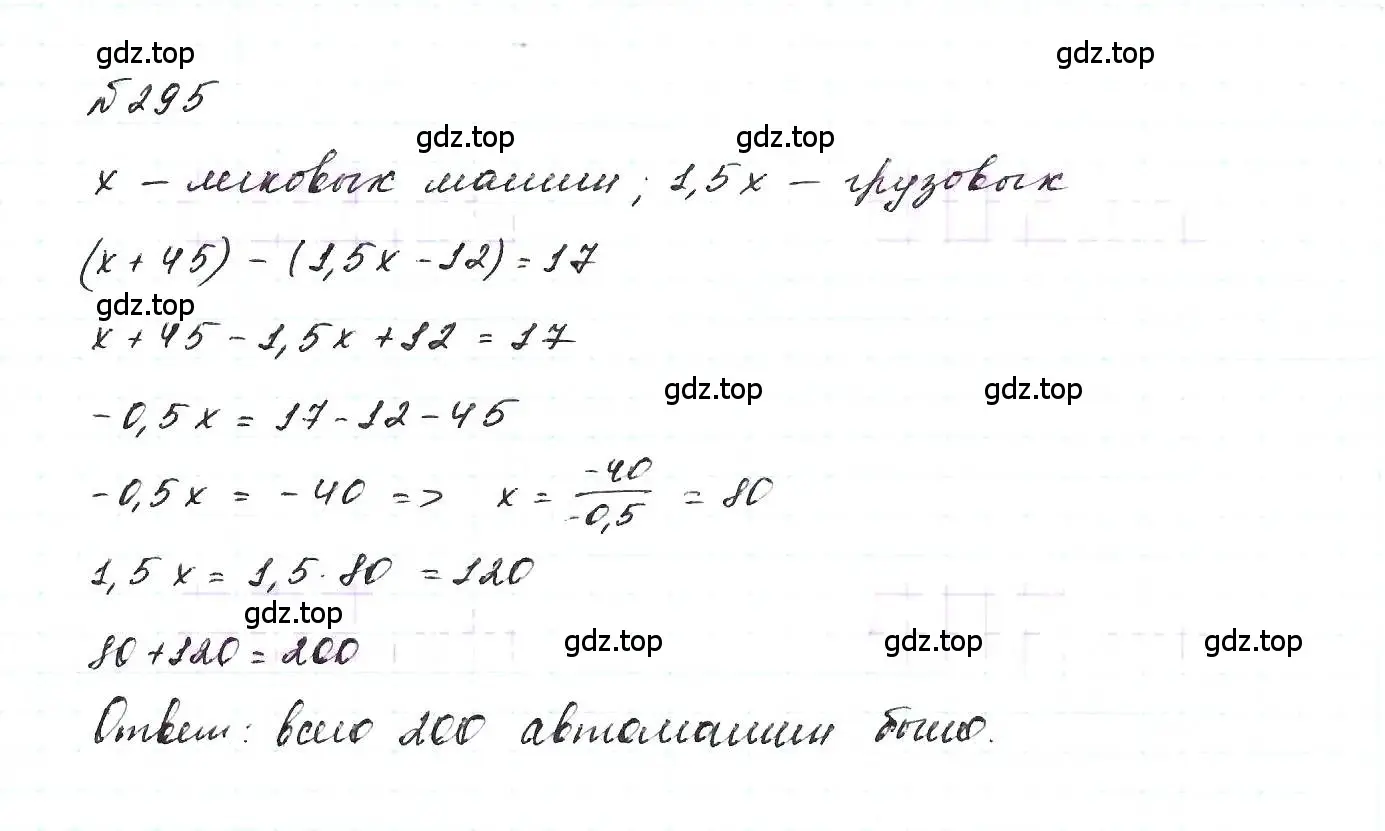 gdz.top gdz.top
№295
gdz.top gdz.top
x – легковых машин; 1,5x – грузовых
(x + 45) - (1,5x - 12) = 17
gdz.top
x + 45 - 1,5x + 12 = 17
gdz.top gdz.top
-0,5x = 17 - 12 - 45
-0,5x = -40 => x = -40/-0,5 = 80
1,5x = 1,5 · 80 = 120
gdz.top
80 + 120 = 200
gdz.top gdz.top gdz.top
Ответ: всего 200 автомашин было.